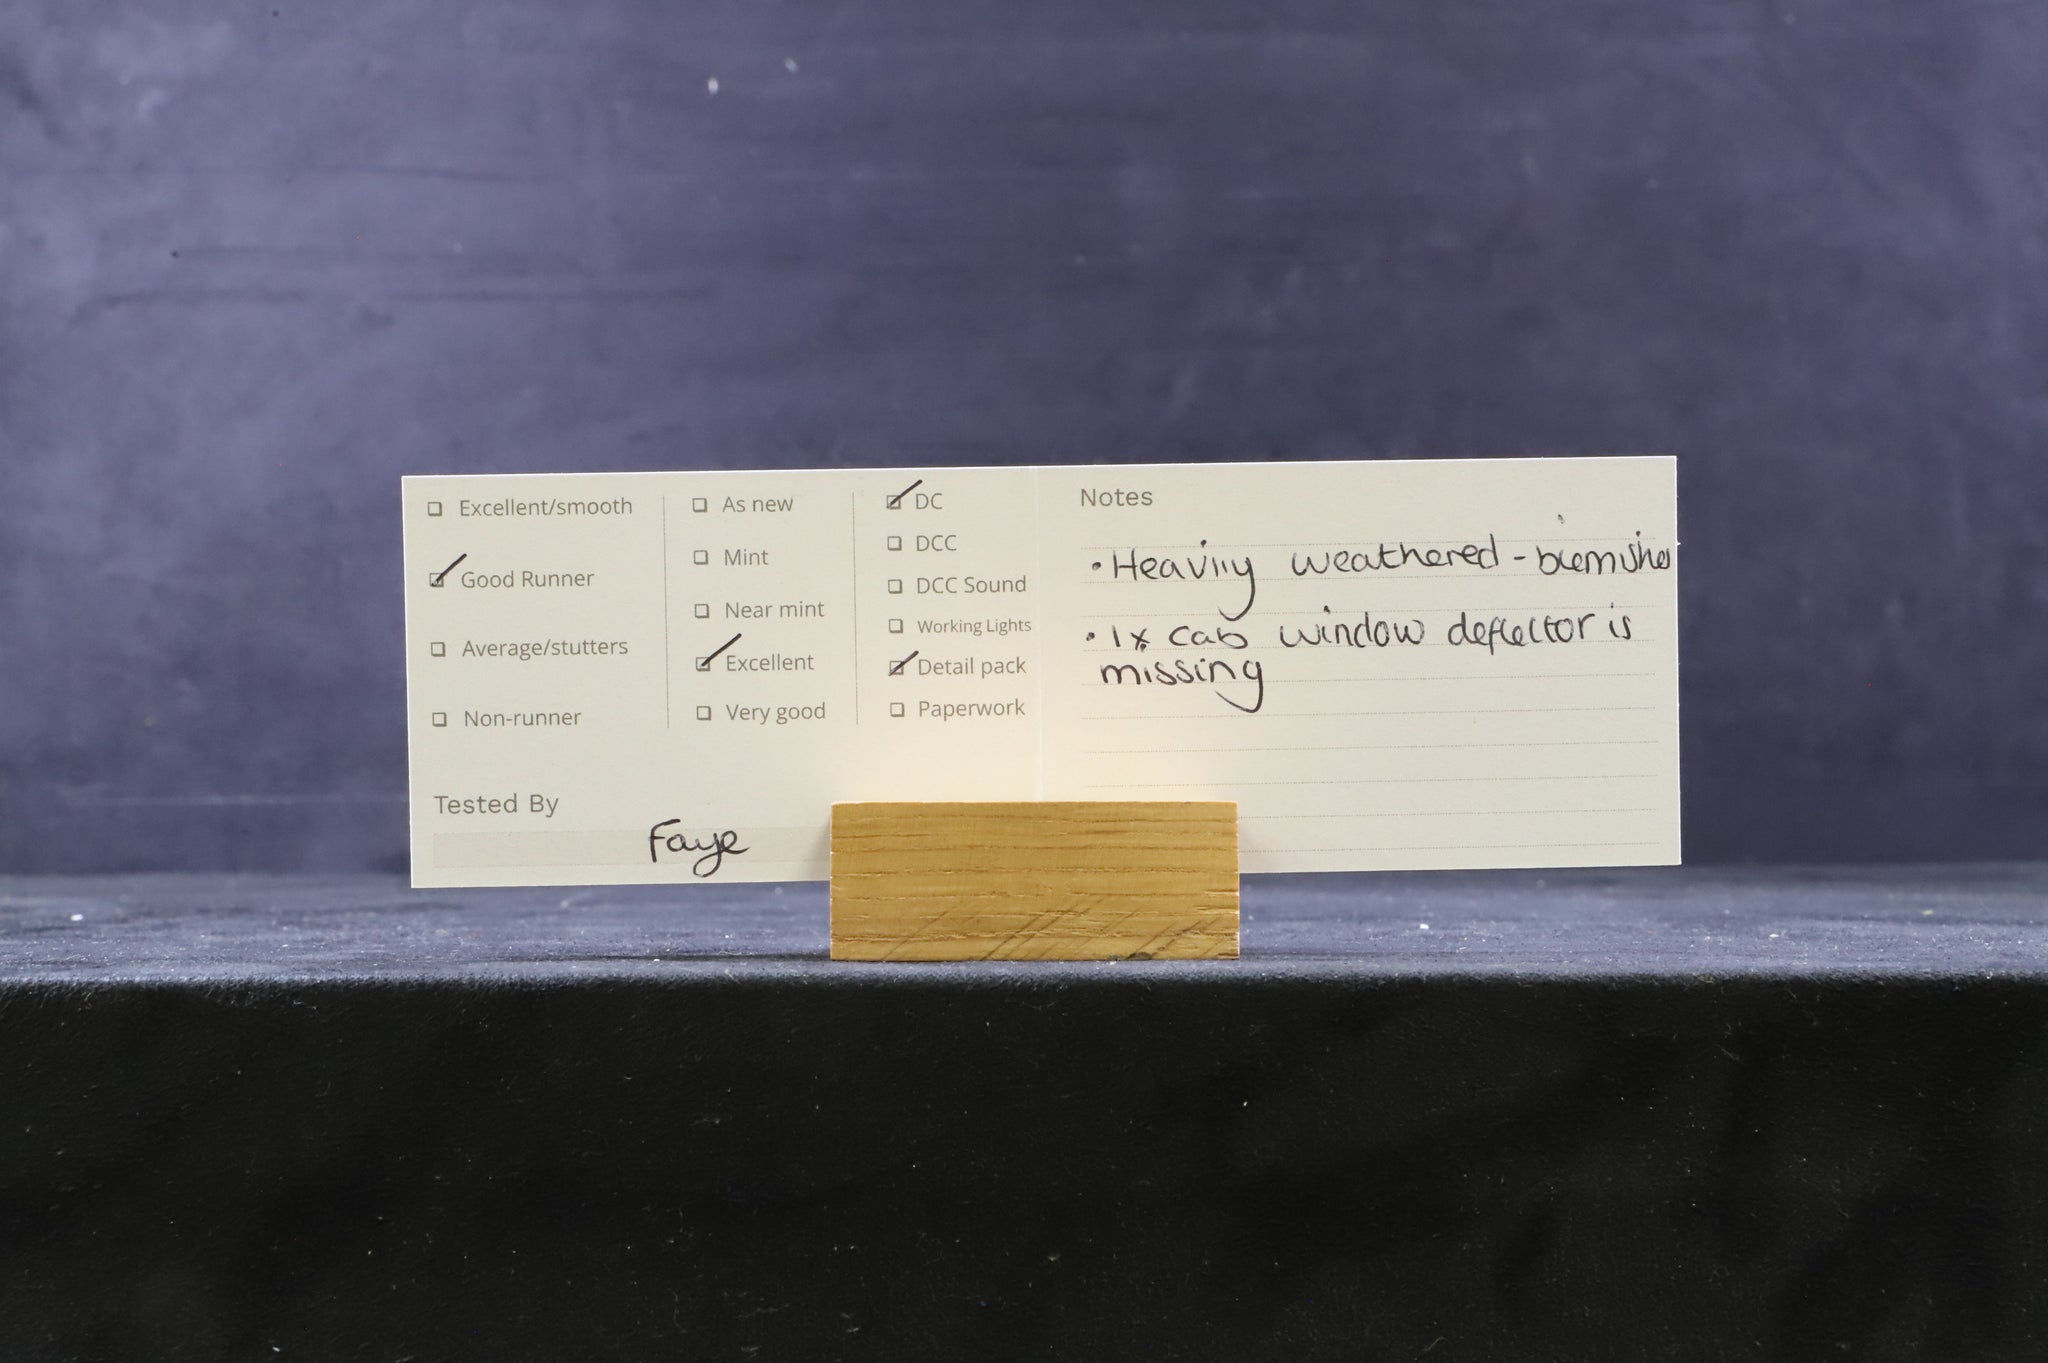 Excellent/smooth
Good Runner
Average/stutters
Non-runner
As new
Mint
Near mint
Excellent
Very good
DC
DCC
DCC Sound
Working Lights
Detail pack
Paperwork
Tested By
Faye
Notes
• Heavily weathered - blemishes
• 1x cab window deflector is
missing